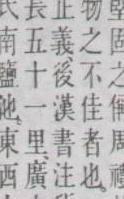 固之偁周禮
物之不佳者也。
正義、後漢書注
長五十一里、廣
氏南鹽池、東西